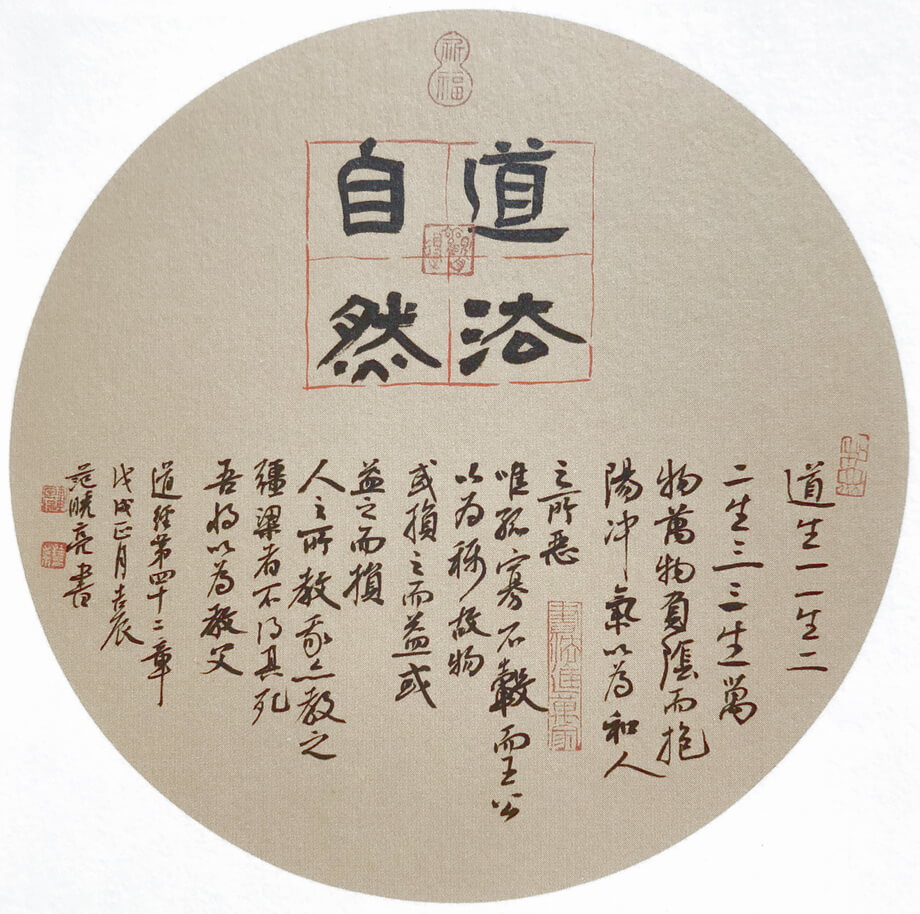 祈福
道法
自然
道生一一生二
二生三三生萬
物萬物負陰而抱
陽冲氣以為和人
之所惡
唯孤寡不轂而王公
以為称故物
或損之而益或
益之而損
人之所教我亦教之
疆梁者不得其死
吾将以為教父
道經第四十二章
戊戌正月吉辰
范晓亮書
書法進萬家